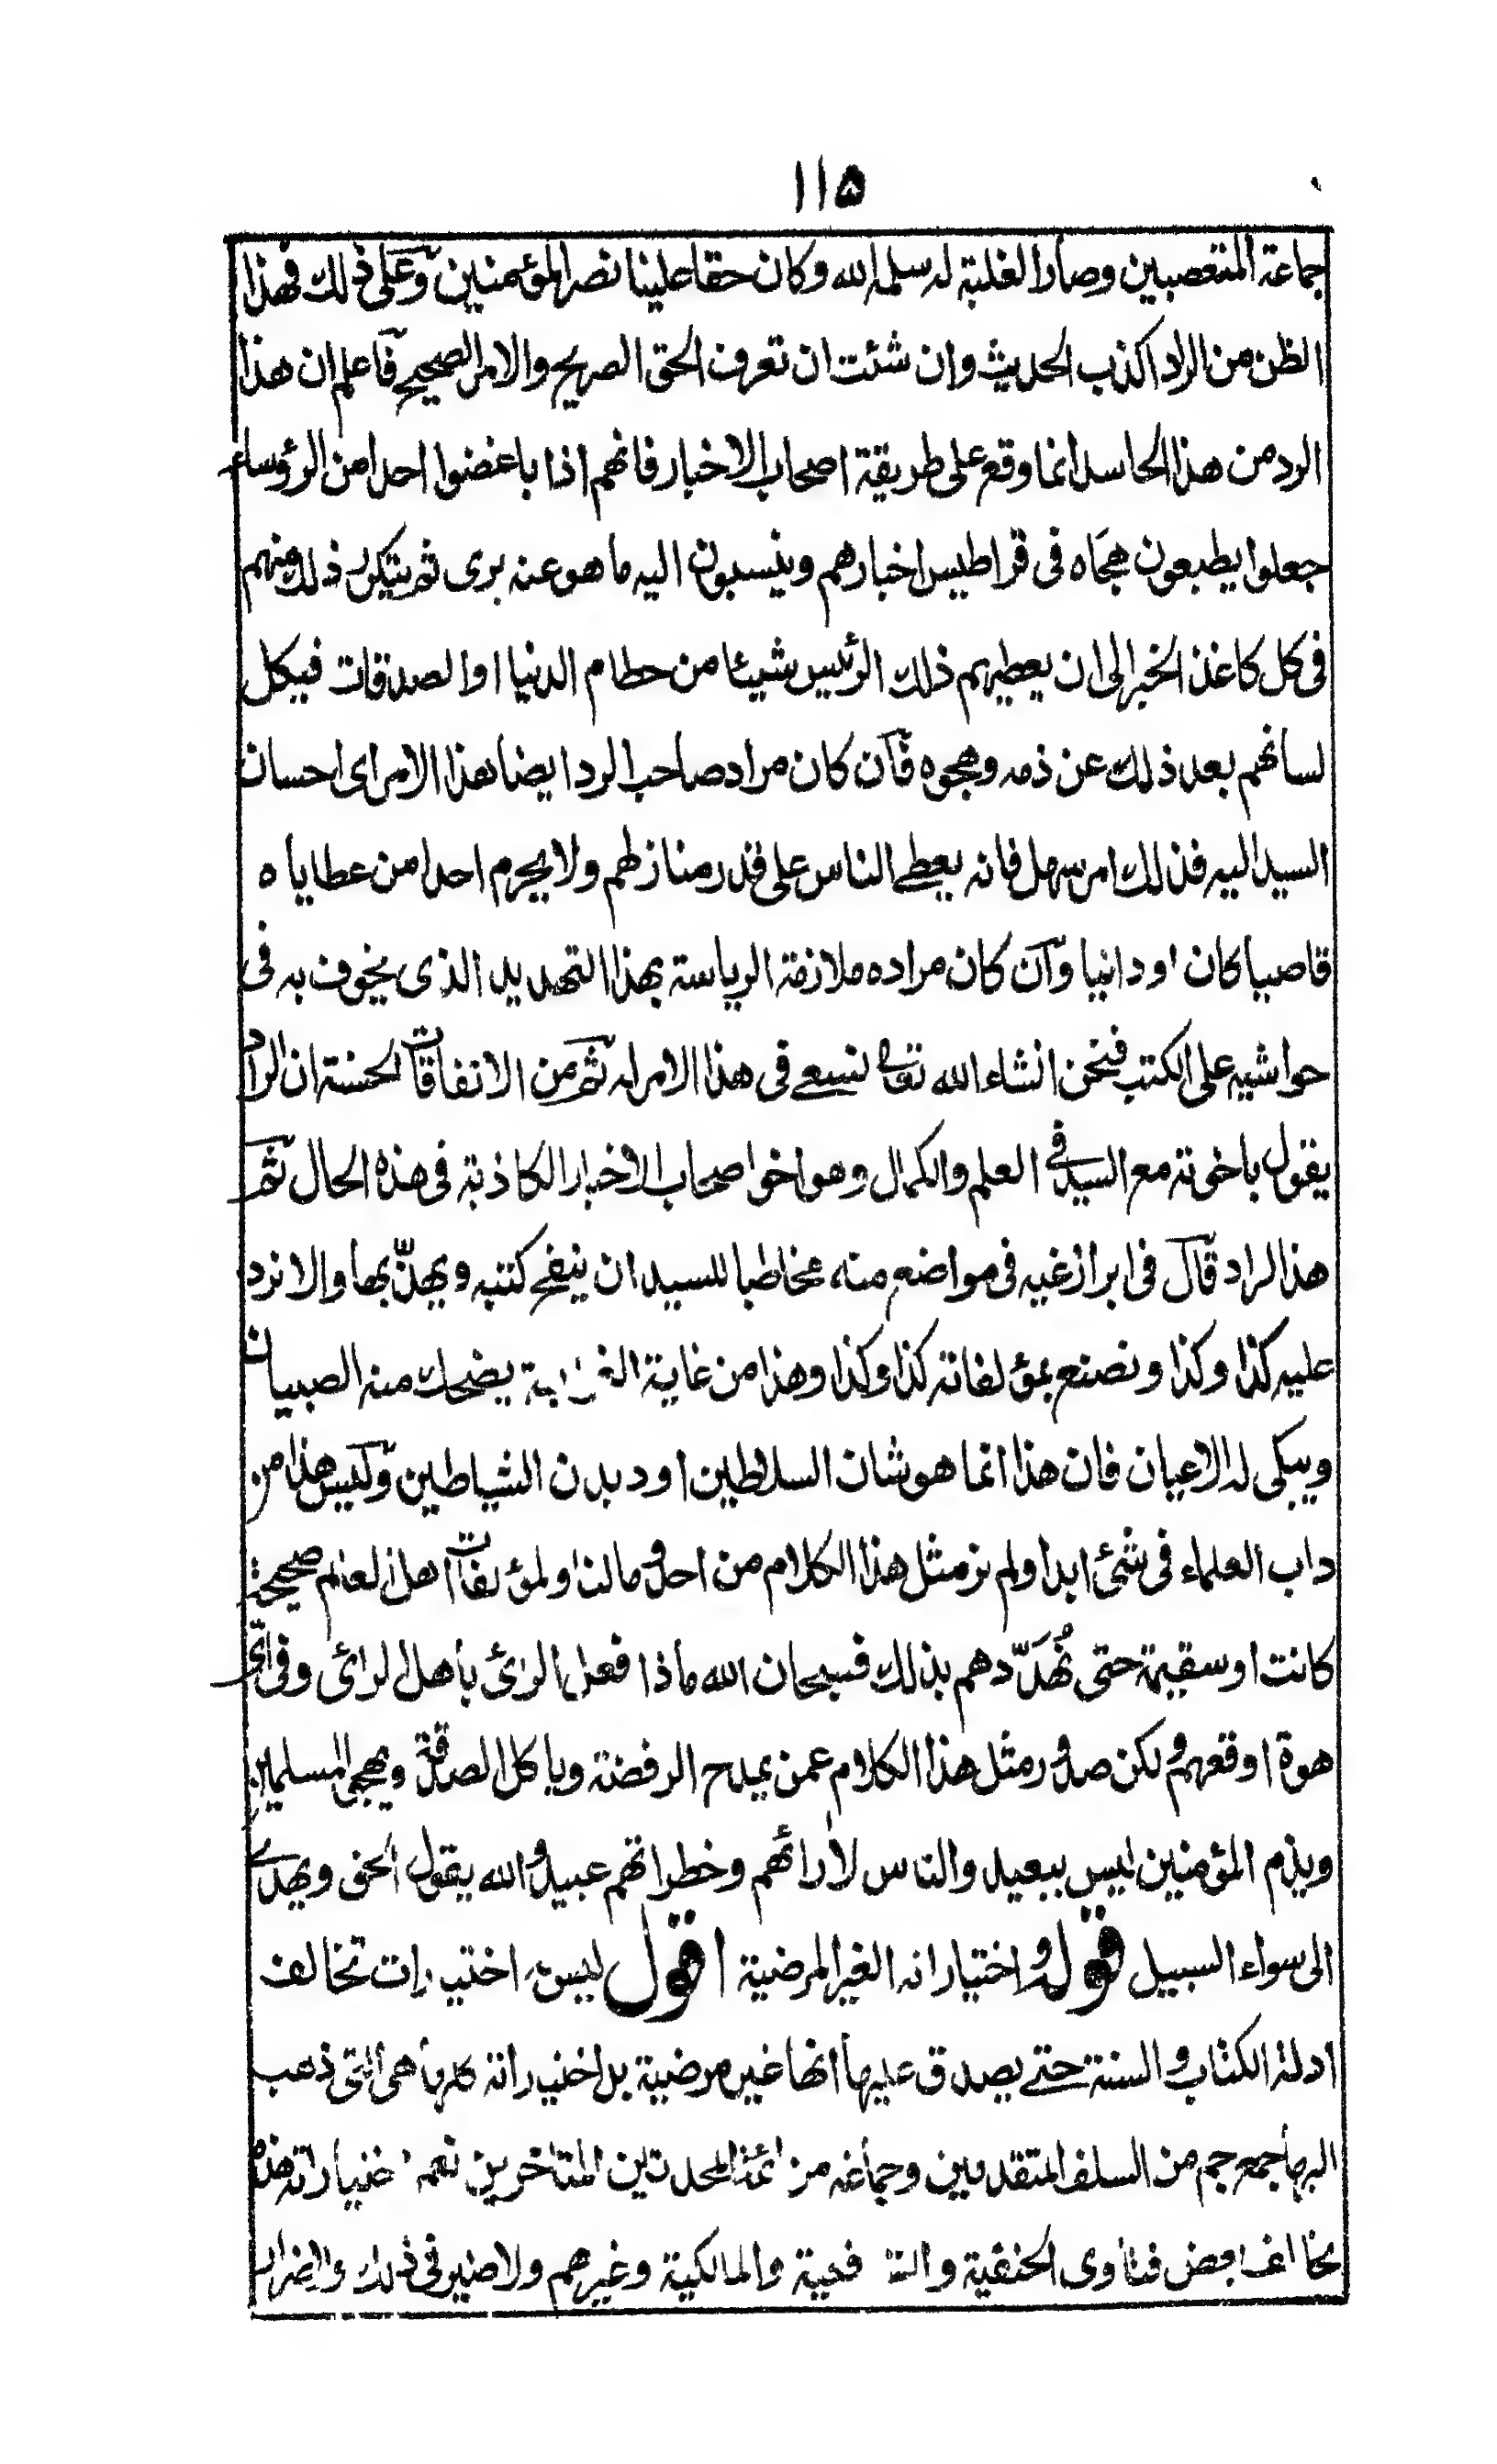 ١١٥
جماعة المتعصبين وصار الغلبة له سلمه الله وكان حقا علينا نصر المؤمنين وعلى ذلك فهذا
الظن من الراد اكذب الحديث وان شئت ان تعرف الحق الصريح والامر الصحيح فاعلم ان هذا
الرد من هذا الحاسد انما وقع على طريقة اصحاب الاخبار فانهم اذا باغضوا احدا من الرؤساء
جعلوا يطبعون هجاه فى قراطيس اخبارهم وينسبون اليه ما هو عنه برى ثم يتكرر ذلك منهم
فى كل كاغذ الخبر الى ان يعطيهم ذلك الرئيس شيئا من حطام الدنيا او الصدقات فيكل
لسانهم بعد ذلك عن ذمه وهجوه فان كان مراد صاحب الرد ايضا هذا الامر اى احسان
السيد اليه فذلك امر سهل فانه يعطے الناس على قدر منازلهم ولا يحرم احدا من عطاياه
قاصيا كان او دانيا وان كان مراده ملازمة الرياسة بهذا التهديد الذى يخوف به فى
حواشيه على الكتب فنحن انشاء الله تعالى نسعے فى هذا الامر له ثم من الاتفاقات الحسنة ان الراد
يقول باخوته مع السيد فى العلم والكمال وهو اخو اصحاب الاخبار الكاذبة فى هذه الحال ثم
هذا الراد قال فى ابراز غيه فى مواضع منه مخاطبا للسيد ان ينقح كتبه ويهذبها والا نرد
عليه كذا وكذا ونصنع بمؤلفاته كذا وكذا وهذا من غاية يضحك منه الصبيان
ويبكى له الاعيان فان هذا انما هو شان السلاطين او ديدن الشياطين وليس هذا من
داب العلماء فى شئ ابدا ولم نر مثل هذا الكلام من احد وما لنا ولمؤلفات اهل العلم صحيحة
كانت او سقيمة حتى نُهَدّدهم بذلك فسبحان الله ماذا فعل الرائ بأهل الرائ وفى اى
هوة اوقعهم ولكن صدور مثل هذا الكلام عمن يمدح الرفضة وياكل الصدقة ويهجى المسلمين
ويذم المؤمنين ليس ببعيد والناس لأرائهم وخطراتهم عبيد والله يقول الحق ويهدے
الى سواء السبيل قوله واختياراته الغير المرضية اقول ليس له اختيارات تخالف
ادلة الكتاب والسنة حتے يصدق عليها انها غير مرضية بل اختياراته كلها هى التى ذهب
اليها جمع جم من السلف المتقدمين وجماعة من ائمة المحدثين المتاخرين نعم اختياراته هذه
تخالف بعض فتاوى الحنفية والشافعية والمالكية وغيرهم ولا ضير فى ذلك ولا ضرار